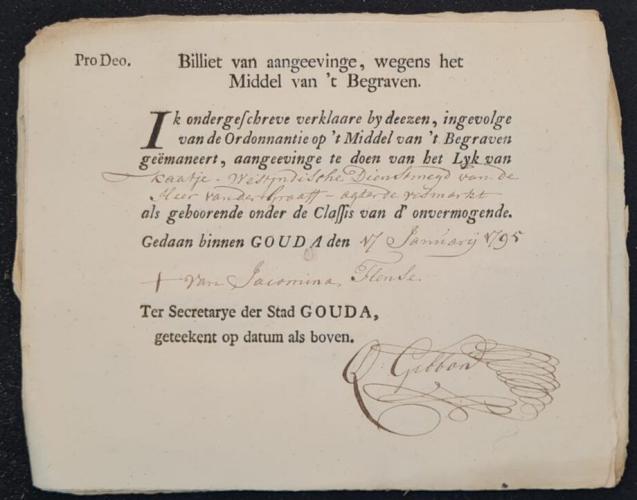 Pro Deo.
Billiet van aangeevinge, wegens het
Middel van 't Begraven.
Ik ondergeschreve verklaare by deezen, ingevolge
van de Ordonnantie op 't Middel van 't Begraven
geëmaneert, aangeevinge te doen van het Lyk van
kaatje - Westyndische Dienstmeyd van de
Heer van der Graaff - agter de vismarkt
als gehoorende onder de Classis van d' onvermogende.
Gedaan binnen GOUDA den 17 Januarij 1795
+ van Jacomina Flense.
Ter Secretarye der Stad GOUDA,
geteekent op datum als boven.
Gibbon